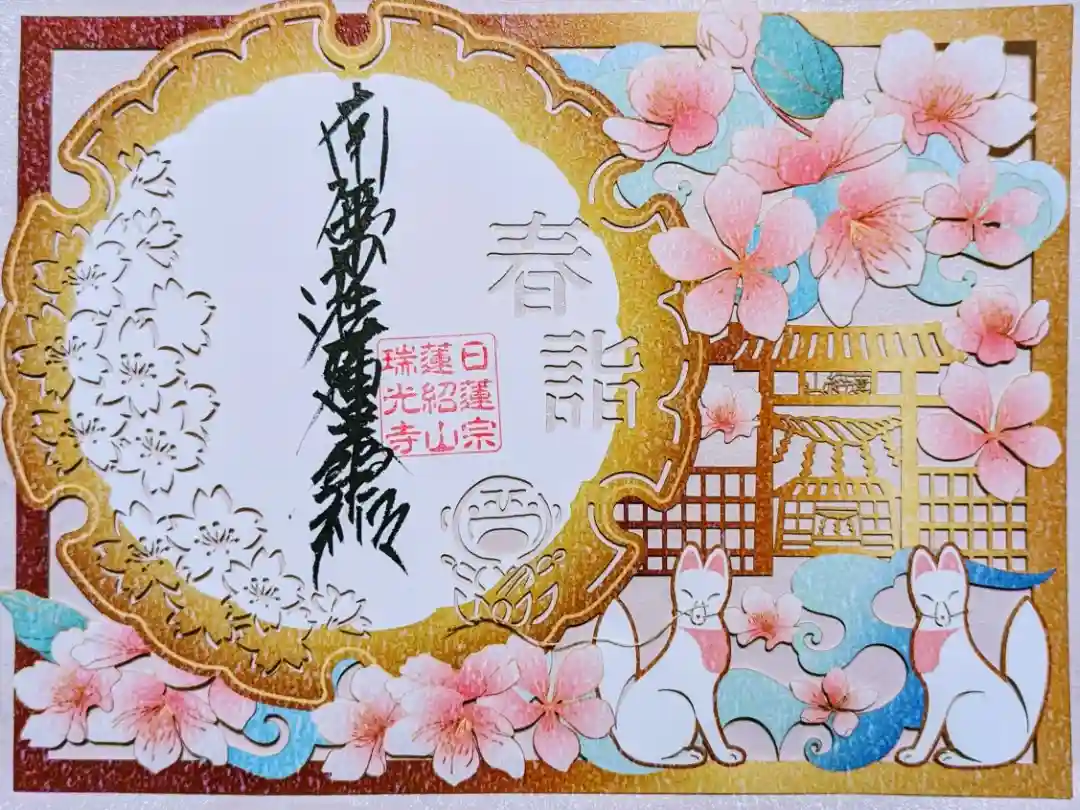 春詣
日蓮宗
蓮紹山
瑞光寺
南無妙法蓮華経